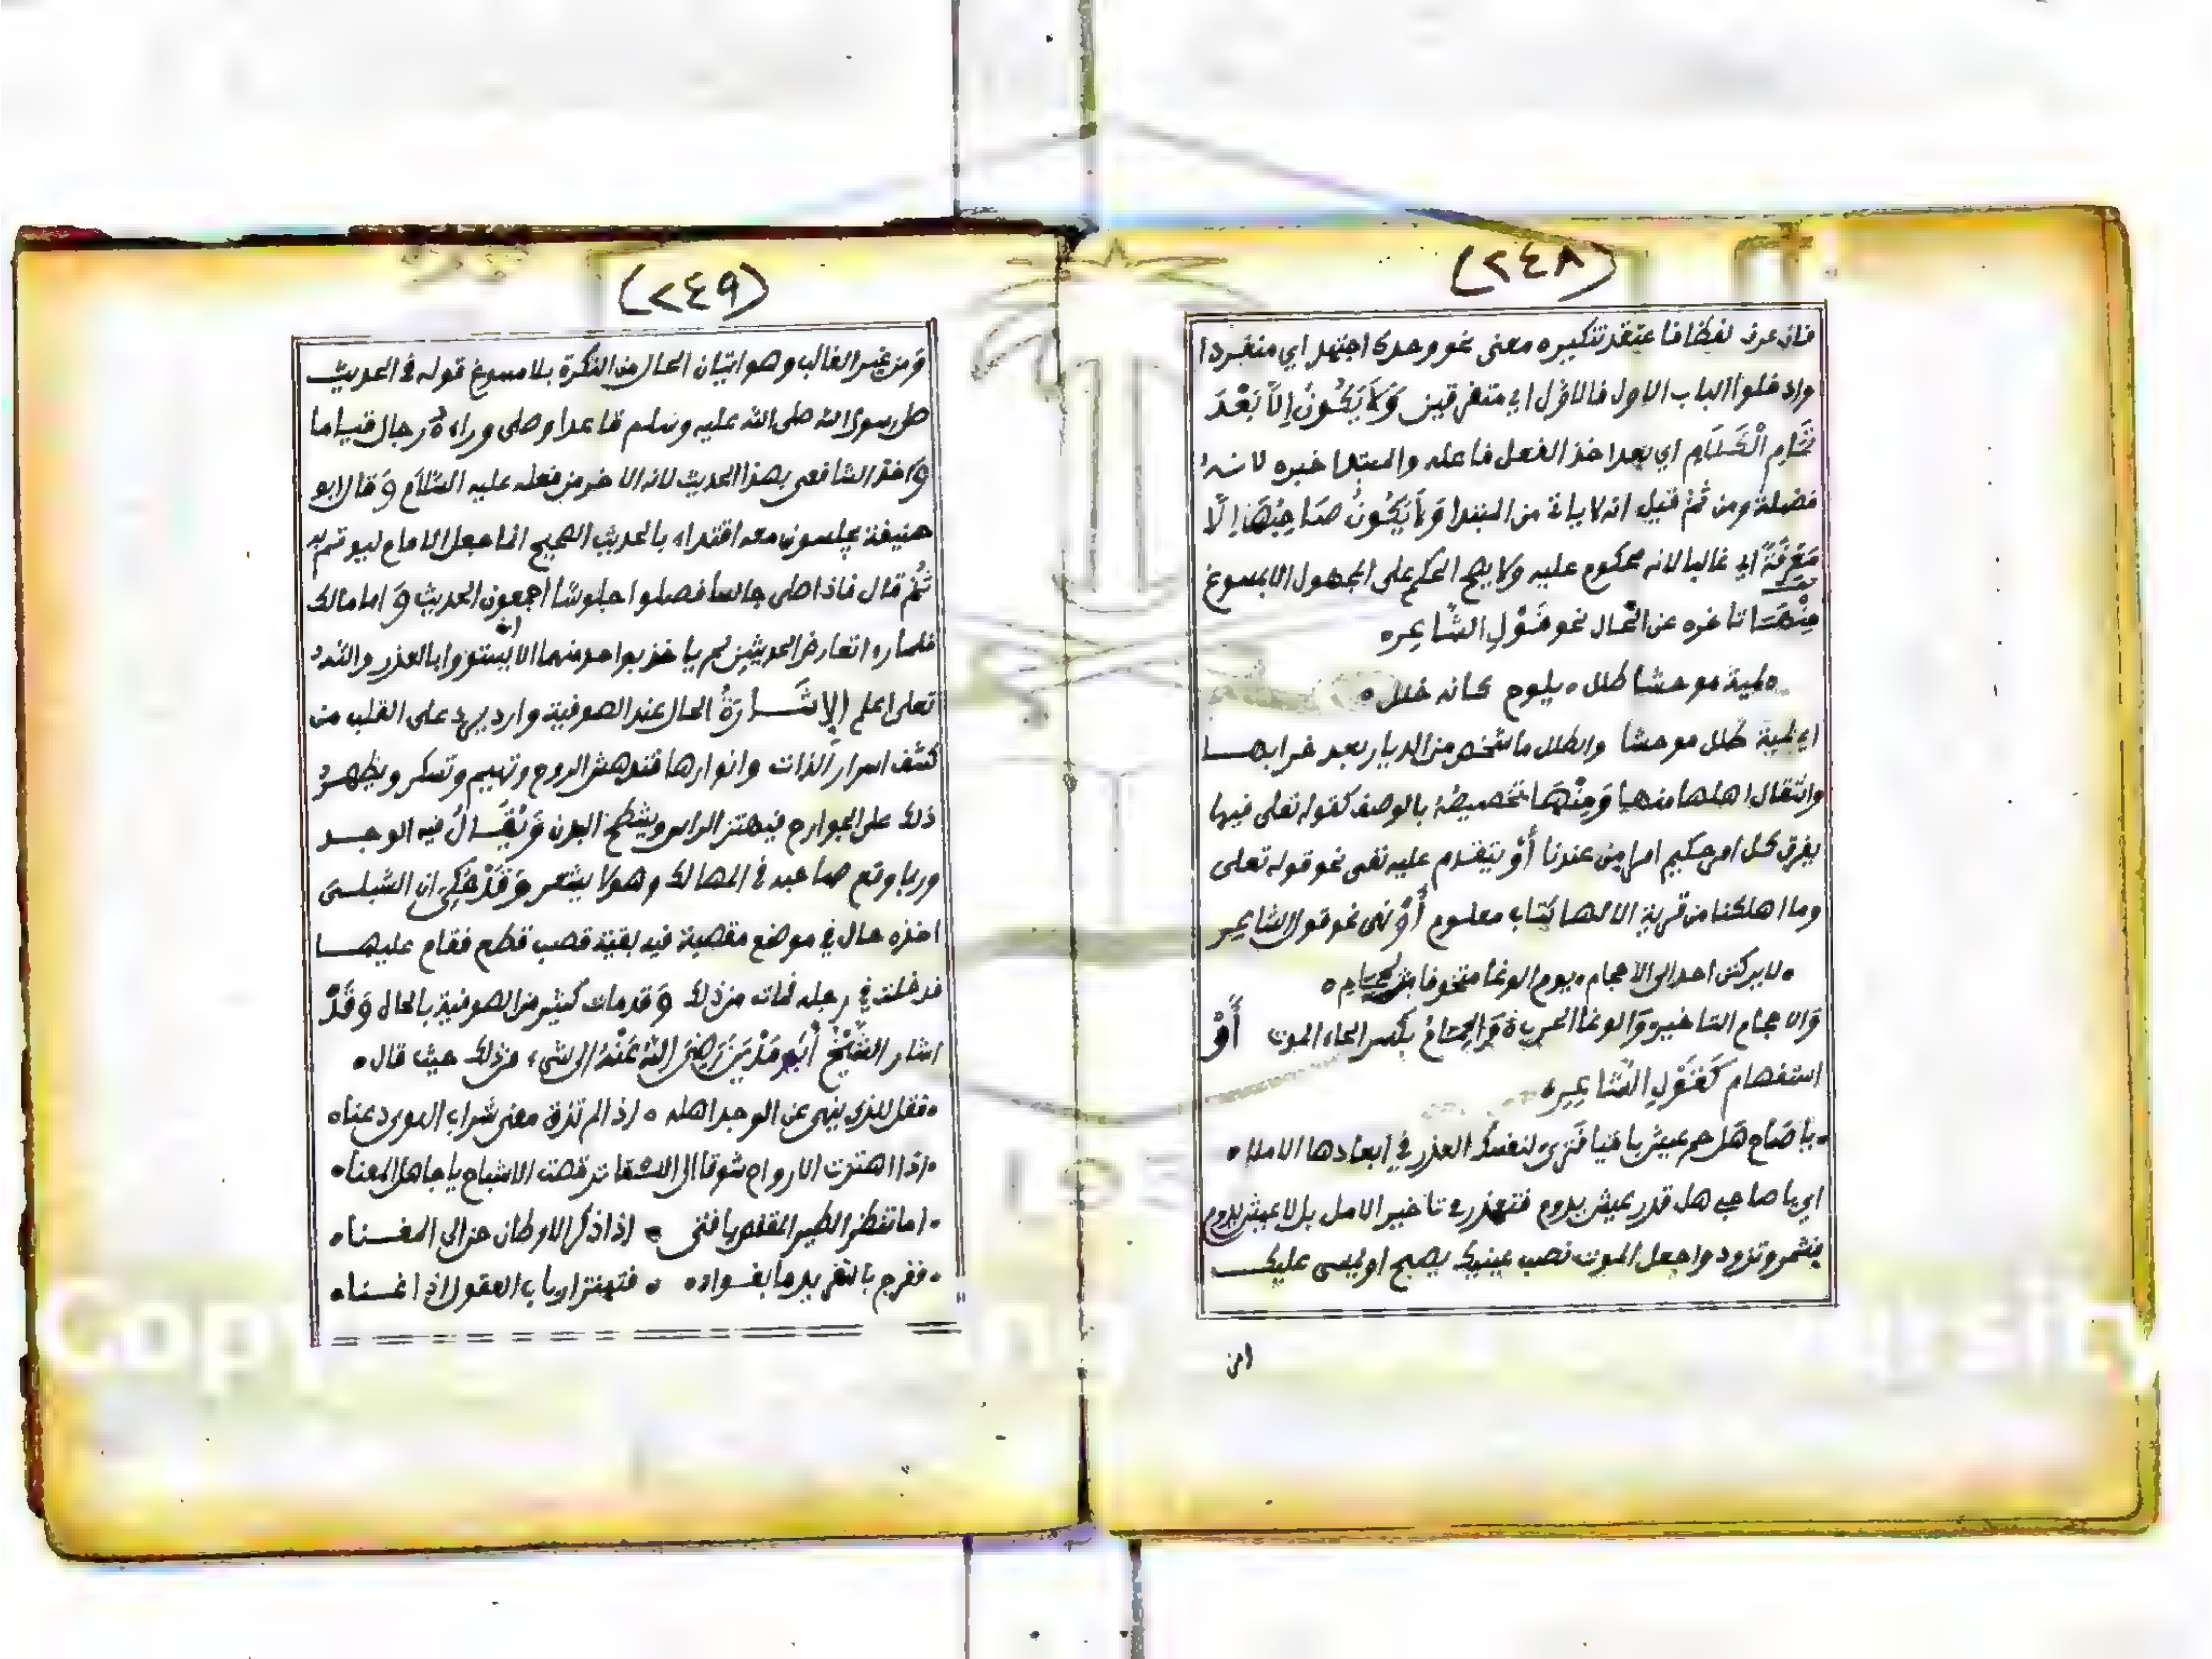 (٢٤٨)
فان عرف لفظا فاعتقد تنكيره معنى نحو وحدك اجتهد اي منفردا
وادخلوا الباب الاول فالاول اي متفرقين وَلاَ يَكُونُ اِلاَّ بَعْدَ
تَمَامِ الْكَلَامِ اي بعد اخذ الفعل فاعله والمبتدا خبره لانه
فضلة ومن ثم قيل انه لا ياتي من المبتدا وَلاَ يَكُونُ صَاحِبُهَا اِلاَّ
مَعْرِفَةً اي غالبا لانه محكوم عليه ولا يصح الحكم على المجهول الا بمسوغ
مِنْهَا تاخره عن الحال نحو قَوْلِ الشَّاعِر
لمية موحشا طلل • يلوح كانه خلل •
اي لمية طلل موحشا والطلل ما شخص من الديار بعد خرابها
وانتقال اهلها منها وَمِنْهَا تخصيصه بالوصف كقوله تعلى فيها
يفرق كل امر حكيم امرا من عندنا أَوْ يتقدم عليه نفى نحو قوله تعلى
وما اهلكنا من قرية الا لها كتاب معلوم أَوْ نهى نحو قول الشاعر
• لا يركنن احد الى الاحجام • يوم الوغا متخوفا لحمام •
وَالاحجام التاخير وَالوغا الحرب وَالحِمَامُ بكسر الحاء الموت أَوْ
استفهام كَقَوْلِ الشَّاعِرِ •
• يا صَاح هَل حم عيش باقيا فَتَرى لنفسك العذر في ابعادها الاملا •
اي يا صاحبي هل قدر عيش يدوم فتعذر في تاخير الامل بل لا عيش يدوم
فشمر وتزود واجعل الموت نصب عينيك يصبح او يمسى عليك
(٢٤٩)
وَمن غير الغالب وهو اتيان الحال من النكرة بلا مسوغ قوله في الحديث
صلى رسول الله صلى الله عليه وسلم قاعدا وصلى وراءه رجال قياما
وَاخذ الشافعى بهذا الحديث لانه الاخر من فعله عليه السَّلَام وَقال ابو
حنيفة يجلسون معه اقتداء بالحديث الصحيح انما جعل الامام ليوتم به
ثُمَّ قال فاذا صلى جالسا فصلوا جلوسًا اجمعون الحديث وَاما مالك
فلما راى تعارض الحديثين لم ياخذ بواحد منهما الا ان يستووا بالعذر والله
تعلى اعلم الاِشَارَةُ الحال عند الصوفية وارد يرد على القلب من
كشف اسرار الذات وانوارها فتدهش الروح وتهيم وتسكر ويظهر
ذلك على الجوارح فيهتز الراس ويشطح البدن وَيُقَالُ فيه الوجد
وربما وقع صاحبه في المهالك وهو لا يشعر وَقَدْ حُكِىَ ان الشبلى
اخذه حال في موضع مقصبة فيه بقية قصب قطع فقام عليها
فدخلت في رجله فمات من ذلك وَقد مات كثير من الصوفية بالحال وَقَدْ
اشار الشَّيْخُ أَبُو مَدْيَنَ رَضِىَ اللهُ عَنْهُ الى شىء من ذلك حيث قال •
• فقل للذى ينهى عن الوجد اهله • اذا لم تذق معنى شراب الهوى دعنا •
• اذا اهتزت الارواح شوقا الى اللقا ترقصت الاشباح يا جاهل المعنا •
• اما تنظر الطير المقفص يا فتى • اذا ذكر الاوطان حن الى المغنا •
• ففرج بالتغريد ما بفواده • فتهتز ارباب العقول اذا غنا •